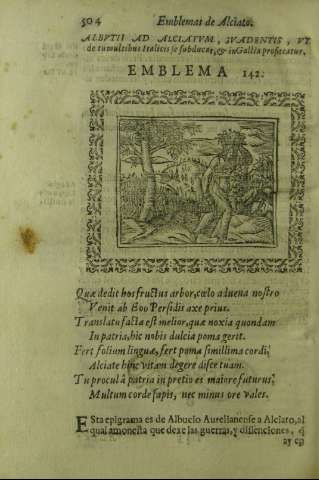 504 Emblemas de Alciato.
ALBVTII AD ALCIATVM, SVADENTIS, VT
de tumultibus Italicis se subducat, & in Gallia profiteatur.
EMBLEMA 142.
Quæ dedit hos fructus arbor, cœlo aduena nostro
Venit ab Eoo Persidis axe prius.
Translatu facta est melior, quæ noxia quondam
In patria, hic nobis dulcia poma gerit.
Fert folium linguæ, fert poma simillima cordi,
Alciate hinc vitam degere disce tuam.
Tu procul à patria in pretio es maiore futurus,
Multum corde sapis, nec minus ore vales.
Esta epigrama es de Albucio Aurelianense a Alciato, al
qual amonesta que dexe las guerras, y disensiones, q̃
ay en